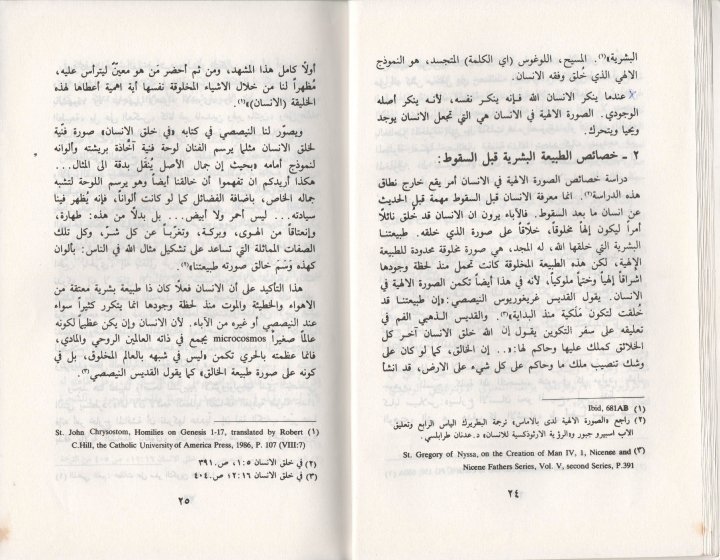 البشرية»(١). المسيح، اللوغوس (اي الكلمة) المتجسد، هو النموذج
الالهي الذي خُلق وفقه الانسان.
عندما ينكر الانسان الله فإنه ينكر نفسه، لأنه ينكر أصله
الوجودي. الصورة الالهية في الانسان هي التي تجعل الانسان يوجد
ويحيا ويتحرك.
٢ ـ خصائص الطبيعة البشرية قبل السقوط:
دراسة خصائص الصورة الالهية في الانسان أمر يقع خارج نطاق
هذه الدراسة(٢). انما معرفة الانسان قبل السقوط مهمة قبل الحديث
عن انسان ما بعد السقوط. فالأباء يرون ان الانسان قد خُلق نائلاً
أمراً ليكون إلهاً مخلوقاً، خلاقاً على صورة الذي خلقه. طبيعتنا
البشرية التي خلقها الله، له المجد، هي صورة مخلوقة محدودة للطبيعة
الإلهية، لكن هذه الطبيعة المخلوقة كانت تحمل منذ لحظة وجودها
اشراقاً إلهياً وختماً ملوكياً، لأنه في هذا أيضاً تكمن الصورة الإلهية في
الانسان. يقول القديس غريغوريوس النيصصي: «إن طبيعتنا قد
خُلقت لتكون مَلَكية منذ البداية»(٣). والقديس الذهبي الفم في
تعليقه على سفر التكوين يقول إن الله خلق الانسان آخر كل
الخلائق كملك عليها وحاكم لها: «... إن الخالق، كما لو كان على
وشك تنصيب ملك ما وحاكم على كل شيء على الارض، قد انشأ
(١) Ibid, 681AB
(٢) راجع «الصورة الالهية لدى بالاماس» ترجمة البطريرك الياس الرابع وتعليق
الاب اسبيرو جبور و«الرؤية الارثوذكسية للانسان»، د. عدنان طرابلسي.
(٣) St. Gregory of Nyssa, on the Creation of Man IV, 1, Nicenee and
Nicene Fathers Series, Vol. V, second Series, P.391
٢٤
أولاً كامل هذا المشهد، ومن ثم أحضر مَن هو معينٌ ليترأس عليه،
مُظهراً لنا من خلال الاشياء المخلوقة نفسها أية اهمية أعطاها لهذه
الخليقة (الانسان)»(١).
ويصوّر لنا النيصصي في كتابه «في خلق الانسان» صورة فنّية
لخلق الانسان مثلما يرسم الفنان لوحة فنية آتخاذة بريشته وألوانه
لنموذج أمامه «بحيث إن جمال الأصل يُنقل بدقة الى المثال...
هكذا أريدكم ان تفهموا أن خالقنا أيضاً وهو يرسم اللوحة لتشبه
جماله الخاص، باضافة الفضائل كما لو كانت ألواناً، فإنه يُظهر فينا
سيادته... ليس أحمر ولا أبيض.. بل بدلاً من هذه: طهارة،
وإنعتاقاً من الهوى، وبركة، وتغرّباً عن كل شرّ، وكل تلك
الصفات المماثلة التي تساعد على تشكيل مثال الله في الناس: بألوان
كهذه وَسَمَ خالق صورته طبيعتنا»(٢).
هذا التأكيد على أن الانسان فعلاً كان ذا طبيعة بشرية معتقة من
الاهواء والخطيئة والموت منذ لحظة وجودها انما يتكرر كثيراً سواء
عند النيصصي أو غيره من الآباء. لأن الانسان وإن يكن عظيماً لكونه
عالماً صغيراً microcosmos يجمع في ذاته العالمين الروحي والمادي،
فانما عظمته بالحري تكمن «ليس في شبهه بالعالم المخلوق، بل في
كونه على صورة طبيعة الخالق» كما يقول القديس النيصصي(٣).
(١) St. John Chrysostom, Homilies on Genesis 1-17, translated by Robert
C.Hill, the Catholic University of America Press, 1986, P. 107 (VIII:7)
(٢) في خلق الانسان ١:٥، ص.٣٩١
(٣) في خلق الانسان ١٢:١٦ ص.٤٠٤
٢٥